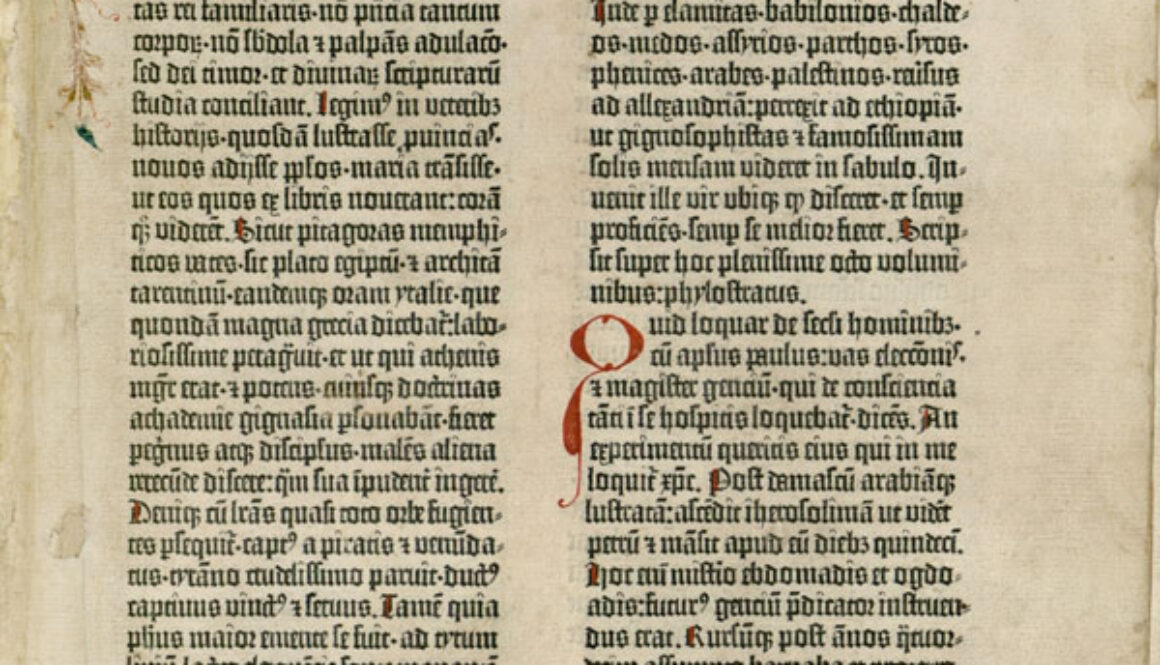 tas rei familiaris·nō pñcia tantum
corpoꝝ·nō sbdola ⁊ palpās adulacō·
sed dei timor·et diuinaꝝ scripturarū
studia conciliant. Legimꝰ in veteribꝫ
historijs·quosdā lustrasse ꝓuincias·
nouos adijsse pp̄los·maria trāsisse·
ut eos quos ex libris nouerant: corā
qꝫ viderēt. Sicut pitagoras memphi-
ticos vates·sic plato egiptū·⁊ architā
tarentinū·eandemqꝫ oram ytalie·que
quondā magna grecia dicebat̄: labo-
riosissime peragᷓuit·et ut qui athenis
mgr̄ erat·⁊ potens·cuiusqꝫ doctrinas
achademie gignasia ꝑsonabāt·fieret
pegͥnus atqꝫ discipl̄us·malēs aliena
verecūde discere: qᷓm sua īpudent̄ ingerē.
Deniqꝫ cū lr̄as quasi toto orbe fugien-
tes ꝑsequit̄·captꝰ a piratis ⁊ venūda-
tus·tyrāno crudelissimo paruit·ductꝰ
captiuus vinctꝰ ⁊ seruus. Tamē quia
ph̄us maior emente se fuit·ad tyrum
Inde ꝑ elamitas·babilonios·chalde-
os·medos·assyrios·parthos·syros·
phenices·arabes·palestinos·reūsus
ad allexandriā: perrexit ad ethiopiā·
ut gignosophistas ⁊ famosissimam
solis mensam videret in sabulo. In-
uenit ille vir vbiqꝫ qͩ disceret·et semꝑ
proficiēs·semꝑ se melior fieret. Scrip-
sit super hoc plenissime octo volumi-
nibus: phylostratus.
Quid loquar de seculi hominibꝫ·
cū apl̄us paulus: vas elecc̄onis·
⁊ magister gentiū·qui de consciencia
tāti ī se hospitis loquebat̄·dicēs. An
experimentū queritis eius qui in me
loquit̄ xp̄c. Post damascū arabiāqꝫ
lustratā: ascēdit iherosolimā ut vidēt
petrū ⁊ māsit apud eū diebꝫ quindecī.
Hoc eni misterio ebdomadis et ogdo-
adis: futurꝰ genciū p̄dicator instruen-
dus erat. Rursūqꝫ post ānos qᷓtuor-